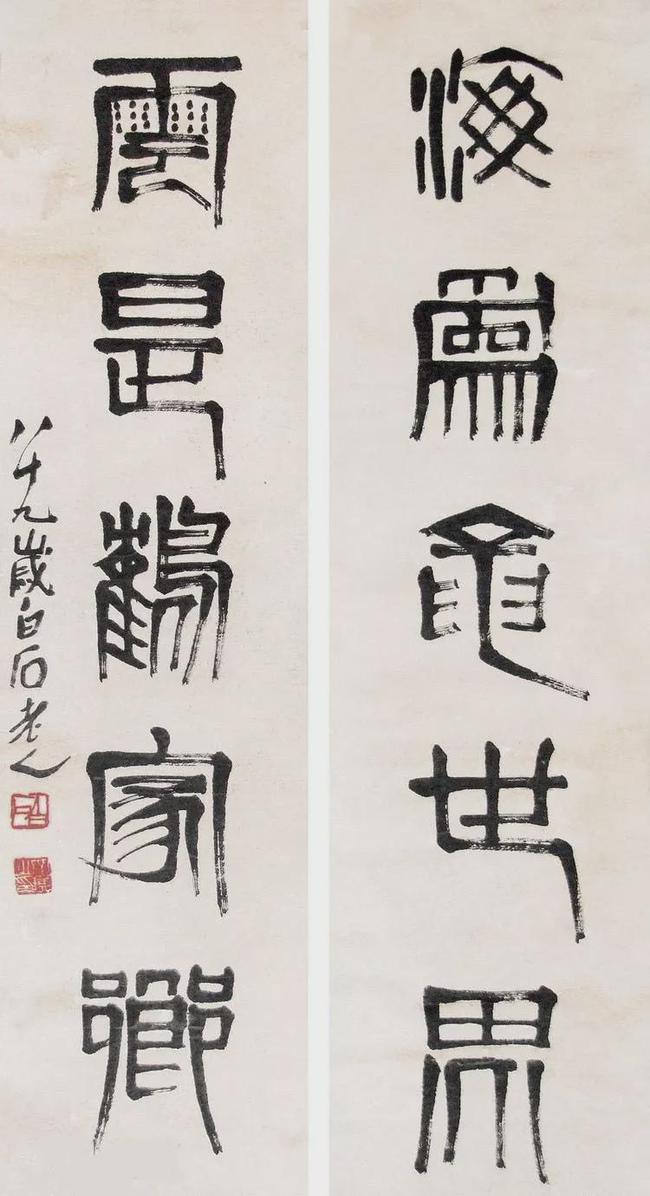 海為龜世界
雲是鶴家鄉
八十九歲白石老人
白石